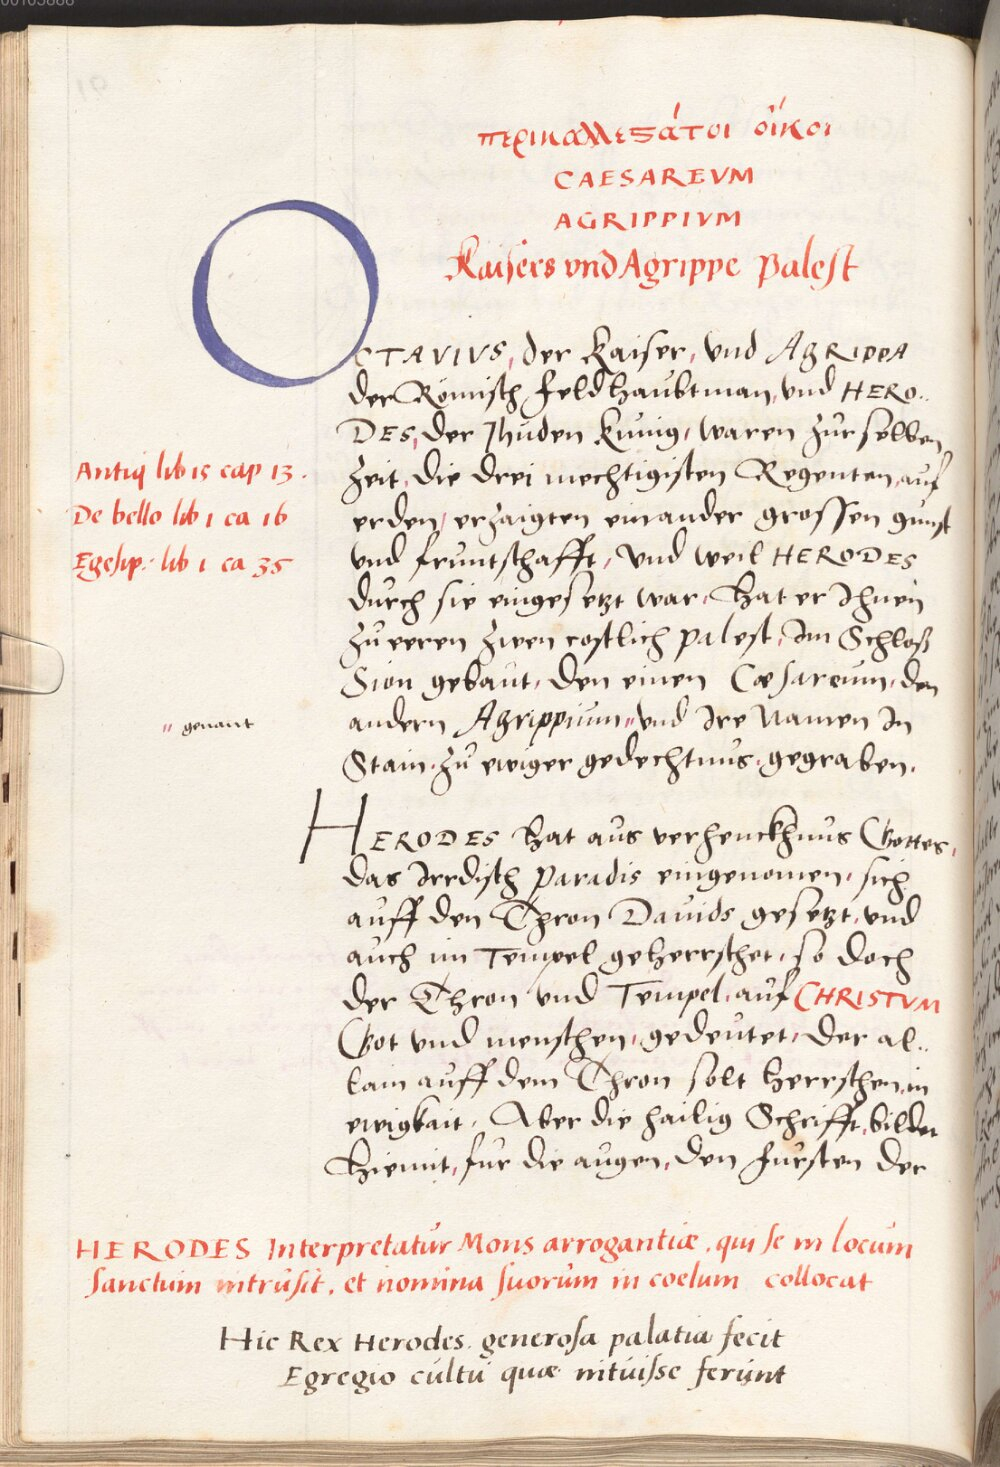 00103888
περικαλλεϛάτοι οἴκοι
CAESAREVM
AGRIPPIVM
Kaisers vnd Agrippe Palest
OCTAVIVS, der Kaiser, vnd AGRIPPA
der Römisch Feldhaubtman, vnd HERO..
DES, der Jhuden Kunig, waren zur selben
zeit, die drei mechtigisten Regenten, auf
erden, erzaigten einander grossen gunst
vnd fruntschafft, vnd weil HERODES
durch sie eingesetzt war, hat er Ihnen
zu eeren zwen costlich palest, Im Schloß
Sion gebaut, den einen Cæsareum, den
andern Agrippium,, vnd Ire Namen In
Stain, zu ewiger gedechtnus, gegraben.
Antiq lib 15 cap 13.
De bello lib 1 ca 16
Egesip: lib 1 ca 35
,, genant
HERODES hat aus verhenckhnus Gottes,
das Irrdisch Paradis eingenomen, sich
auff den Thron Dauids gesetzt, vnd
auch im Tempel geherrschet, so doch
der Thron vnd Tempel, auf CHRISTVM
Got vnd menschen, gedeutet, der al..
lain auff dem Thron solt herrschen, in
ewigkait, Aber die hailig Schrifft, bildet
hiemit, fur die augen, den Fursten der
HERODES Interpretatur Mons arrogantiæ, qui se in locum
sanctum intrusit, et nomina suorum in coelum collocat
Hic Rex Herodes generosa palatia fecit
Egregio cultu quæ nituisse ferunt